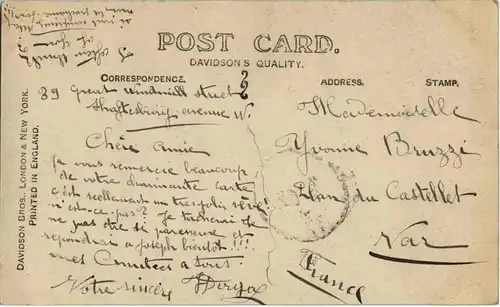 POST CARD.
DAVIDSON'S QUALITY.
CORRESPONDENCE.
ADDRESS.
STAMP.
DAVIDSON BROS., LONDON & NEW YORK.
PRINTED IN ENGLAND.
I often think
of you
39 Great Windmill street
Shaftesbury avenue W.
Chère Amie
Je vous remercie beaucoup
de votre charmante carte
c'est réellement un très joli rêve!
n'est-ce pas? Je tâcherai de
ne pas être si paresseuse et
répondrai à Joseph bientôt!!!
mes Amitiés à tous.
Votre sincère
Mademoiselle
Yvonne Bruzzi
Plan du Castellet
Var
France